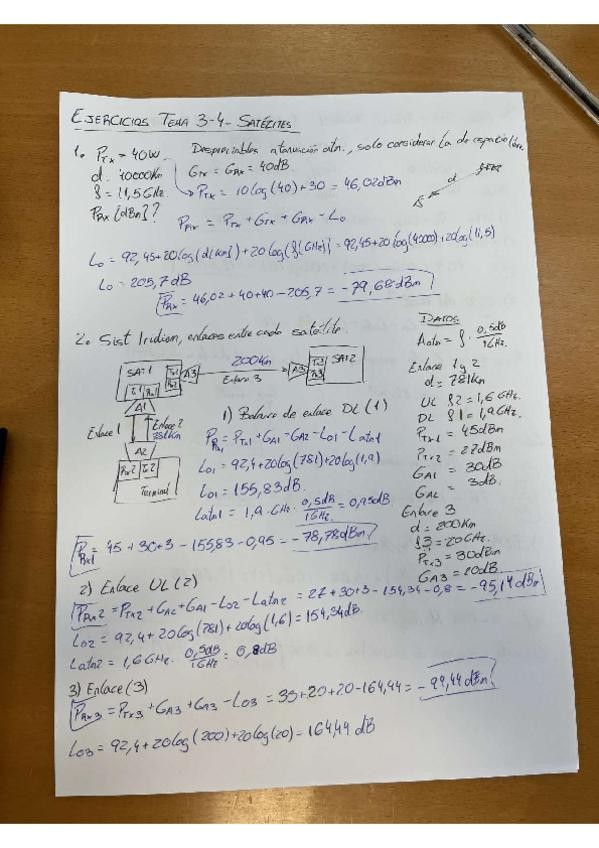 EJERCICIOS TEMA 3-4- SATÉLITES
1. PTx = 40W
Despreciables atenuación atm., solo considerar la de espacio libre.
d = 40000Km
GTx = GRx = 40dB
f = 11,5GHz
PTx = 10log(40)+30 = 46,02dBm
d
PRx [dBm]?
PRx = PTx + GTx + GRx - Lo
Lo = 92,45+20log(d[Km])+20log(f[GHz]) = 92,45+20log(40000)+20log(11,5)
Lo = 205,7dB
PRx = 46,02+40+40-205,7 = -79,68dBm
2. Sist Iridium, enlaces entre cada satélite.
SAT1
Tx1
Rx1
A3
200Km
Enlace 3
A3
Tx3
Rx3
SAT2
A1
Enlace 1
Enlace 2
781Km
A2
Rx2
Tx2
Terminal
DATOS
Aatm = f · 0,5dB/1GHz
Enlace 1 y 2
d = 781Km
UL f2 = 1,6GHz.
DL f1 = 1,9GHz.
PTx1 = 45dBm
PTx2 = 22dBm
GA1 = 30dB
GA2 = 3dB.
Enlace 3
d = 200Km
f3 = 20GHz.
PTx3 = 30dBm
GA3 = 20dB
1) Balance de enlace DL(1)
PRx1 = PTx1+GA1-GA2-L01-Latm1
L01 = 92,4+20log(781)+20log(1,9)
L01 = 155,83dB.
Latm1 = 1,9 · 0,5dB/1GHz = 0,95dB
PRx1 = 45+30+3-155,83-0,95 = -78,78dBm
2) Enlace UL(2)
PRx2 = PTx2+GA2+GA1-L02-Latm2 = 22+30+3-154,34-0,8 = -95,14dBm
L02 = 92,4+20log(781)+20log(1,6) = 154,34dB.
Latm2 = 1,6GHz · 0,5dB/1GHz = 0,8dB
3) Enlace(3)
PRx3 = PTx3+GA3+GA3-L03 = 30+20+20-164,44 = -94,44dBm
L03 = 92,4+20log(200)+20log(20) = 164,44 dB